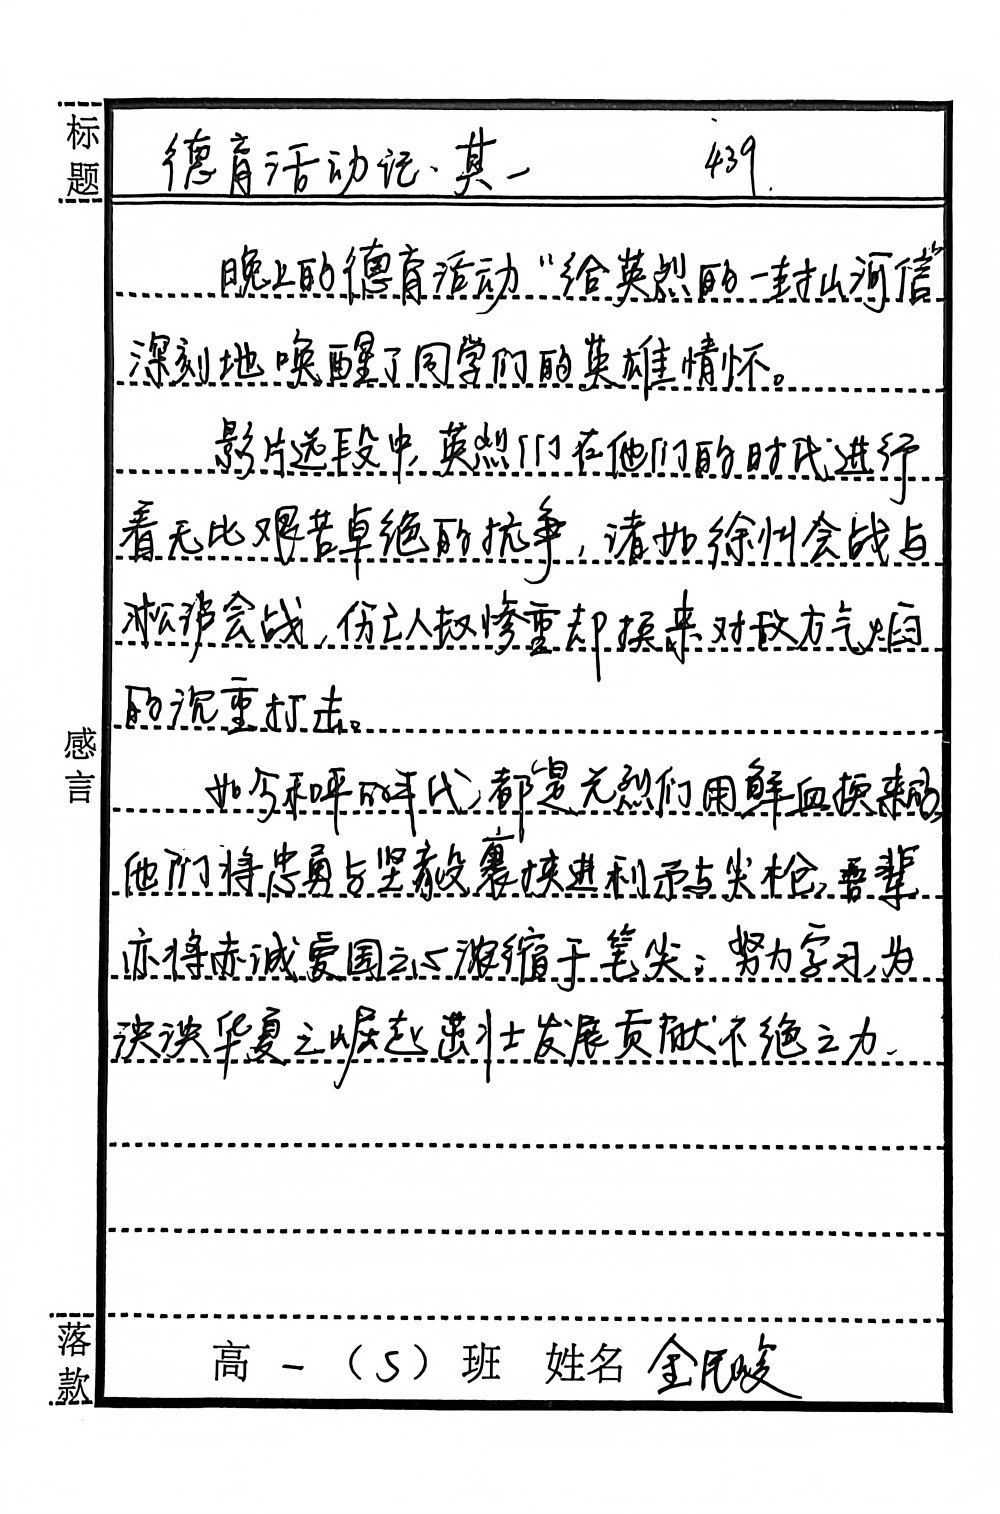 标题
德育活动记·其一 439
晚上的德育活动“给英烈的一封山河信”
深刻地唤醒了同学们的英雄情怀。
影片选段中,英烈们在他们的时代进行
着无比艰苦卓绝的抗争,诸如徐州会战与
淞沪会战,伤亡人数惨重却换来对敌方气焰
的沉重打击。
感言
如今和平的年代,都是先烈们用鲜血换来的,
他们将忠勇与坚毅裹挟进利矛与尖枪,吾辈
亦将赤诚爱国之心浓缩于笔尖;努力学习,为
泱泱华夏之崛起茁壮发展贡献不绝之力.
落款
高一(5)班 姓名 金民